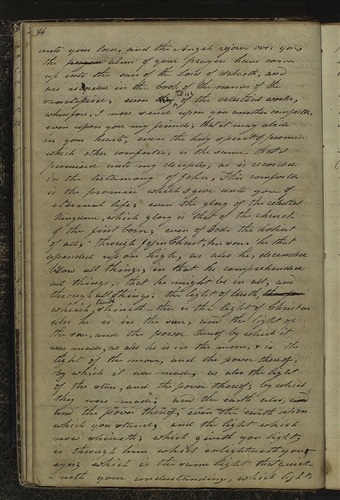 34
unto your Lord, and the Angels rejoice over you
the alms of your prayers have come
up into the ears of the Lord of Sabaoth, and
are recorded in the book of the names of the
sanctified, even they of the celestial world,
wherefore, I now send upon you another comforter,
even upon you my friends; that it may abide
in your hearts, even the holy spirit of promise
which other comforter, is the same that I
promised unto my deciples, as is recorded
in the testamony of John, This comforter
is the promise which I give unto you of
eternal life; even the glory of the celestial
kingdom; which glory is that of the church
of the first born; even of God. the holiest
of all; through Jesus Christ, his son. he that
ascended up on high, as also he descended
below all things; in that he comprehended
all things, that he might be in all, and
through all things: the light of truth,
which truth shineth this is the light of Christ as
also he is in the sun, and the light of
the sun, and the power thereof by which it
was made, as also he is in the moon, & is the
light of the moon, and the power thereof,
by which it was made, as also the light
of the stars, and the power thereof; by which
they were made; and the earth also, and
and the power thereof; even the earth upon
which you stand; and the light which
now shineth; which giveth you light,
is through him which enlightneth your
eyes; which is the same light that quick-
neth your understanding, which light